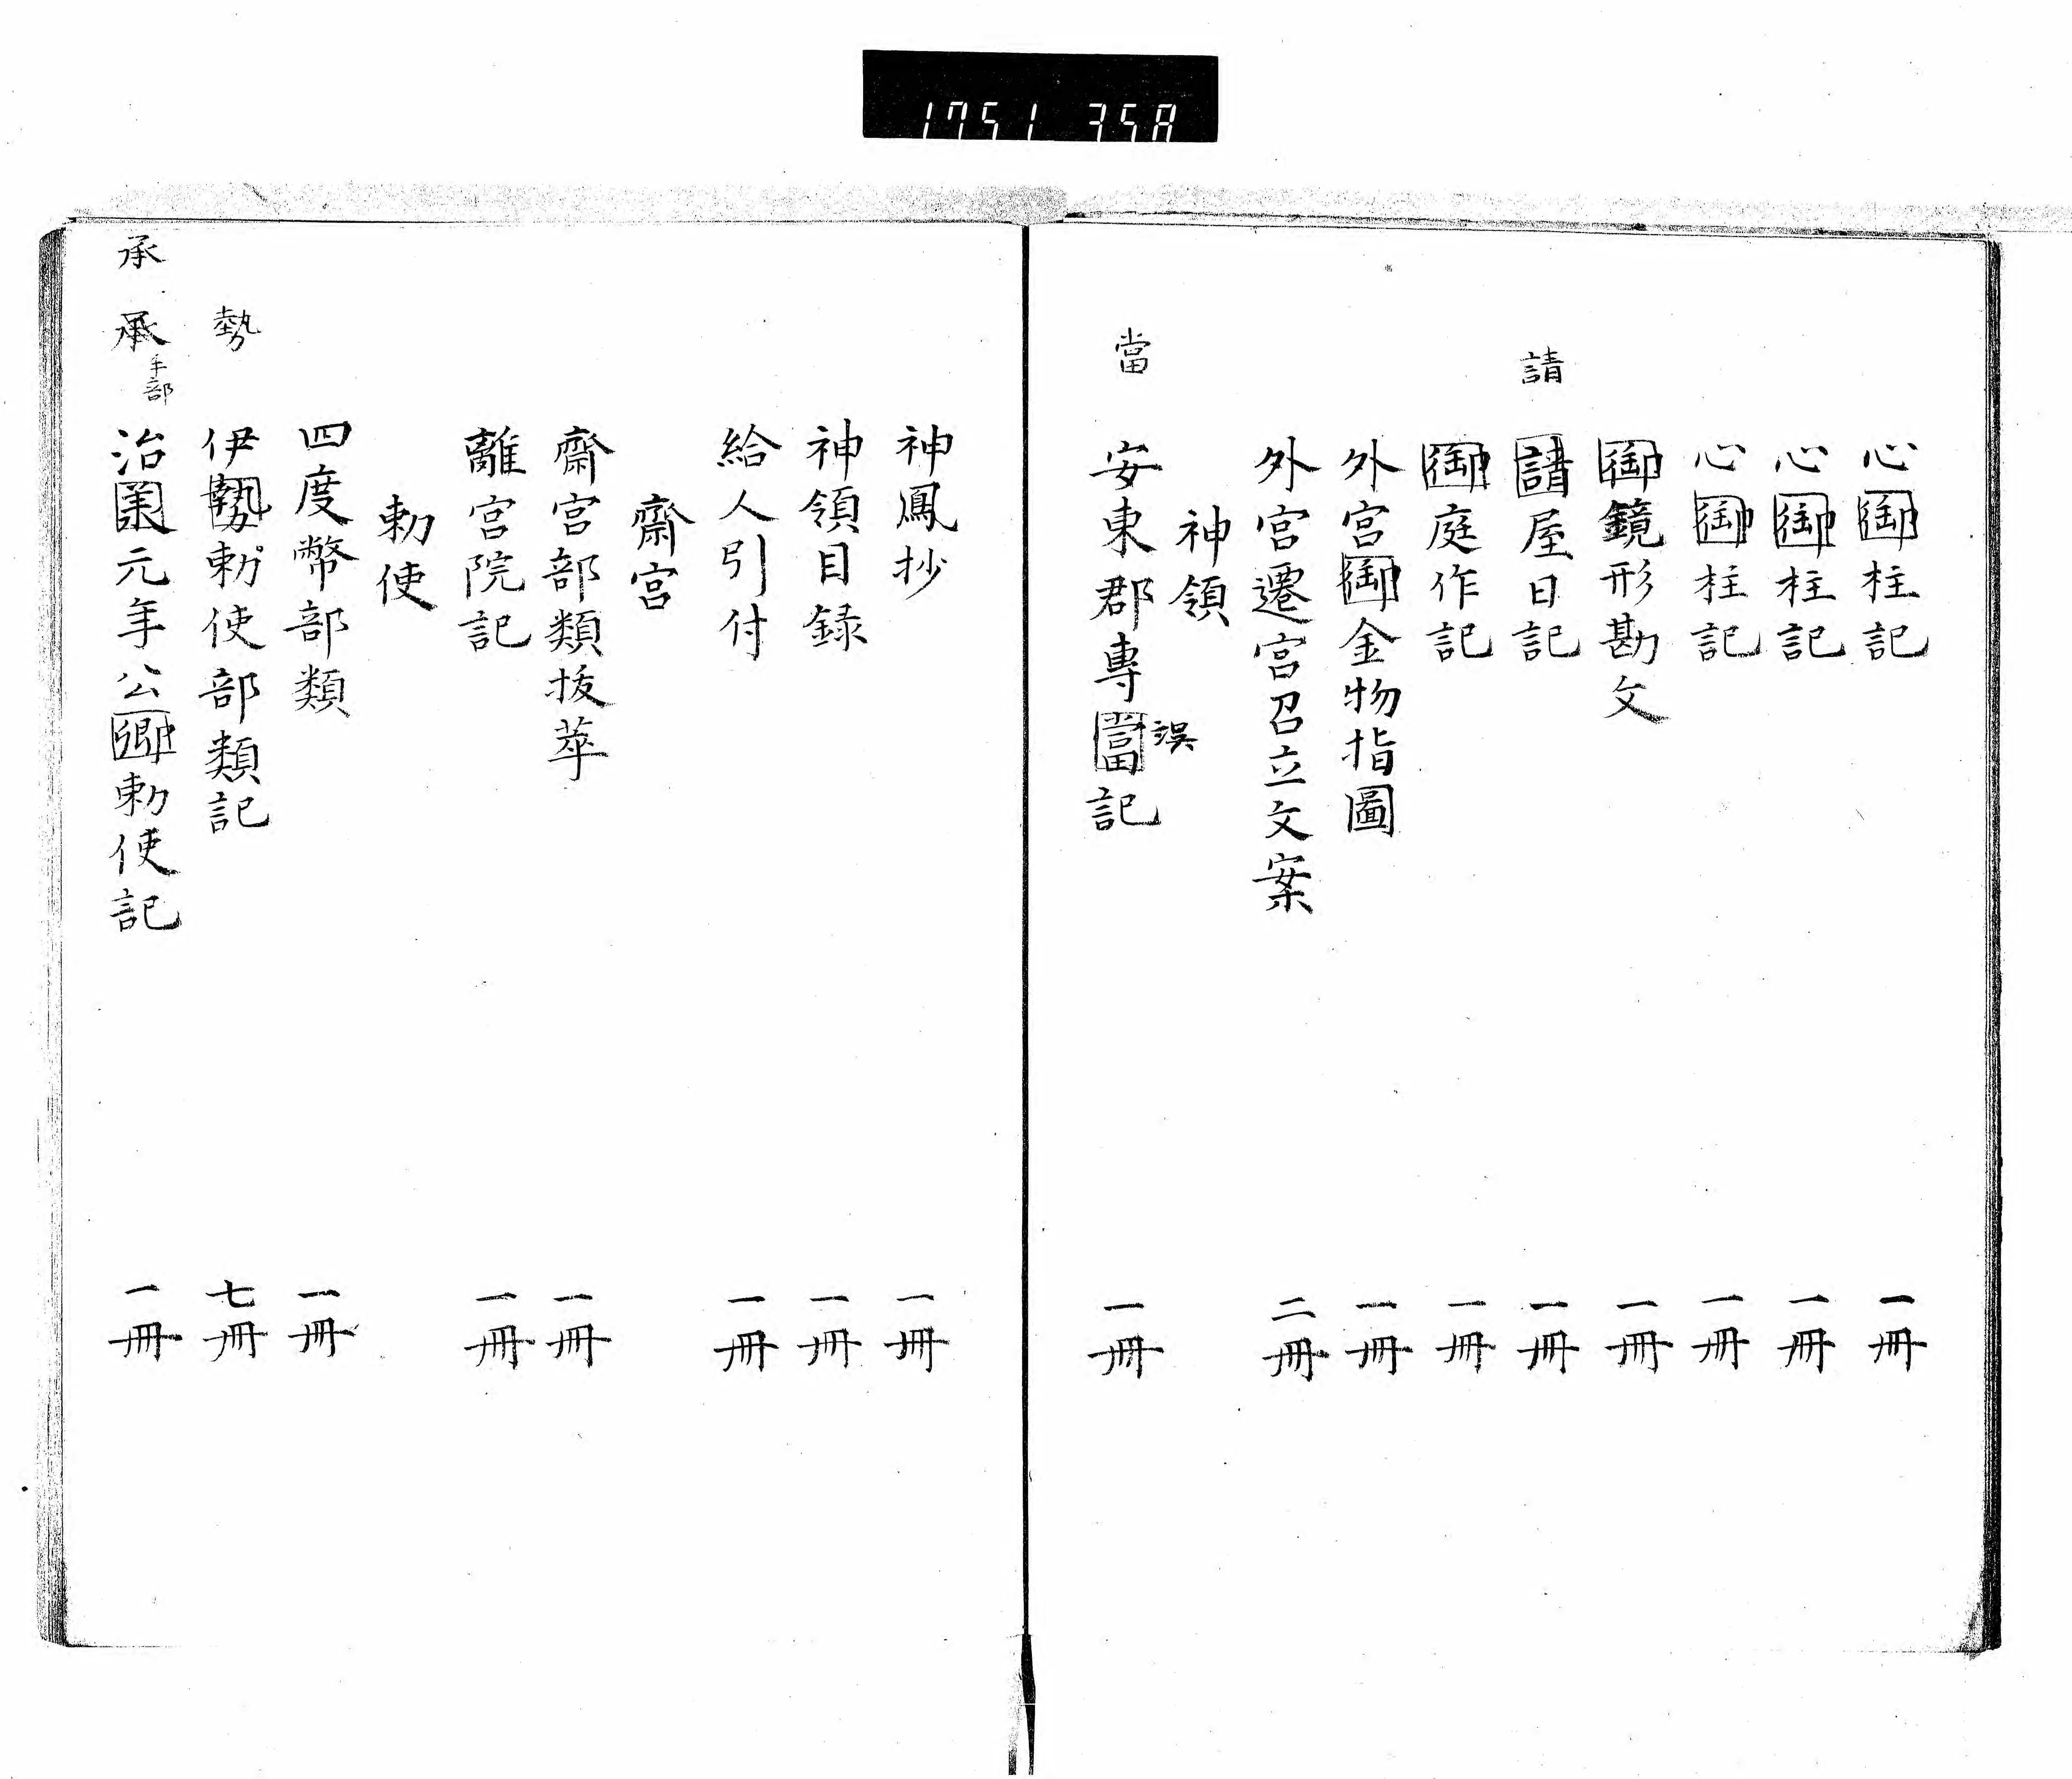 1751 358
心御柱記 一冊
心御柱記 一冊
心御柱記 一冊
御鏡形勘文 一冊
請
請屋日記 一冊
御庭作記 一冊
外宮御金物指圖 一冊
外宮遷宮召立文案 二冊
神領
當
安東郡專當記 一冊
誤
神鳳抄 一冊
神領目録 一冊
給人引付 一冊
齋宮
齋宮部類拔萃 一冊
離宮院記 一冊
勅使
四度幣部類 一冊
勢
伊勢勅使部類記 七冊
承
承
手部
治承元年公卿勅使記 一冊